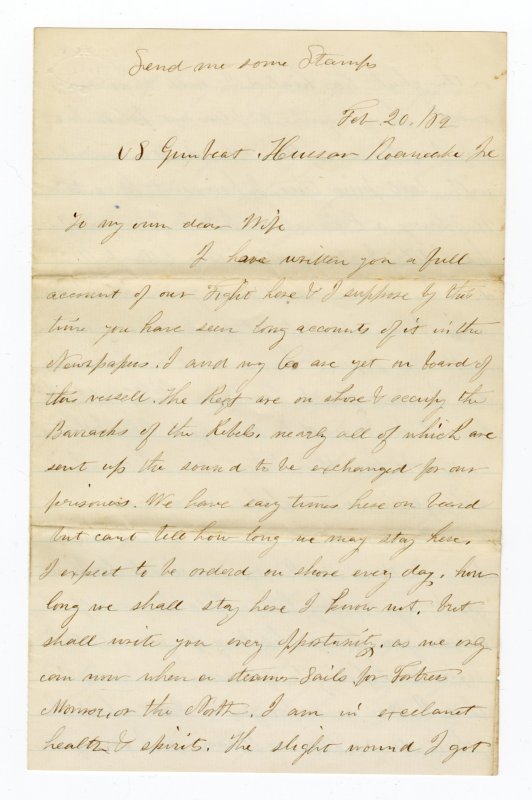 Send me some Stamps
Feb 20. /62
US Gunboat Hussar Roanoake Ire
To my own dear Wife
I have written you a full
account of our Fight here & I suppose by this
time you have seen long accounts of it in the
Newspapers. I and my Co are yet on board of
this vessell. The Regt are on shore & occupy the
Barracks of the Rebels, nearly all of which are
sent up the sound to be exchanged for our
prisoners. We have easy times here on board
but cant tell how long we may stay here.
I expect to be orderd on shore every day, how
long we shall stay here I know not, but
shall write you every opportunity, as we only
can now when a steamer Sails for Fortress
Monroe, or the North. I am in excelant
health & spirits. The slight wound I got